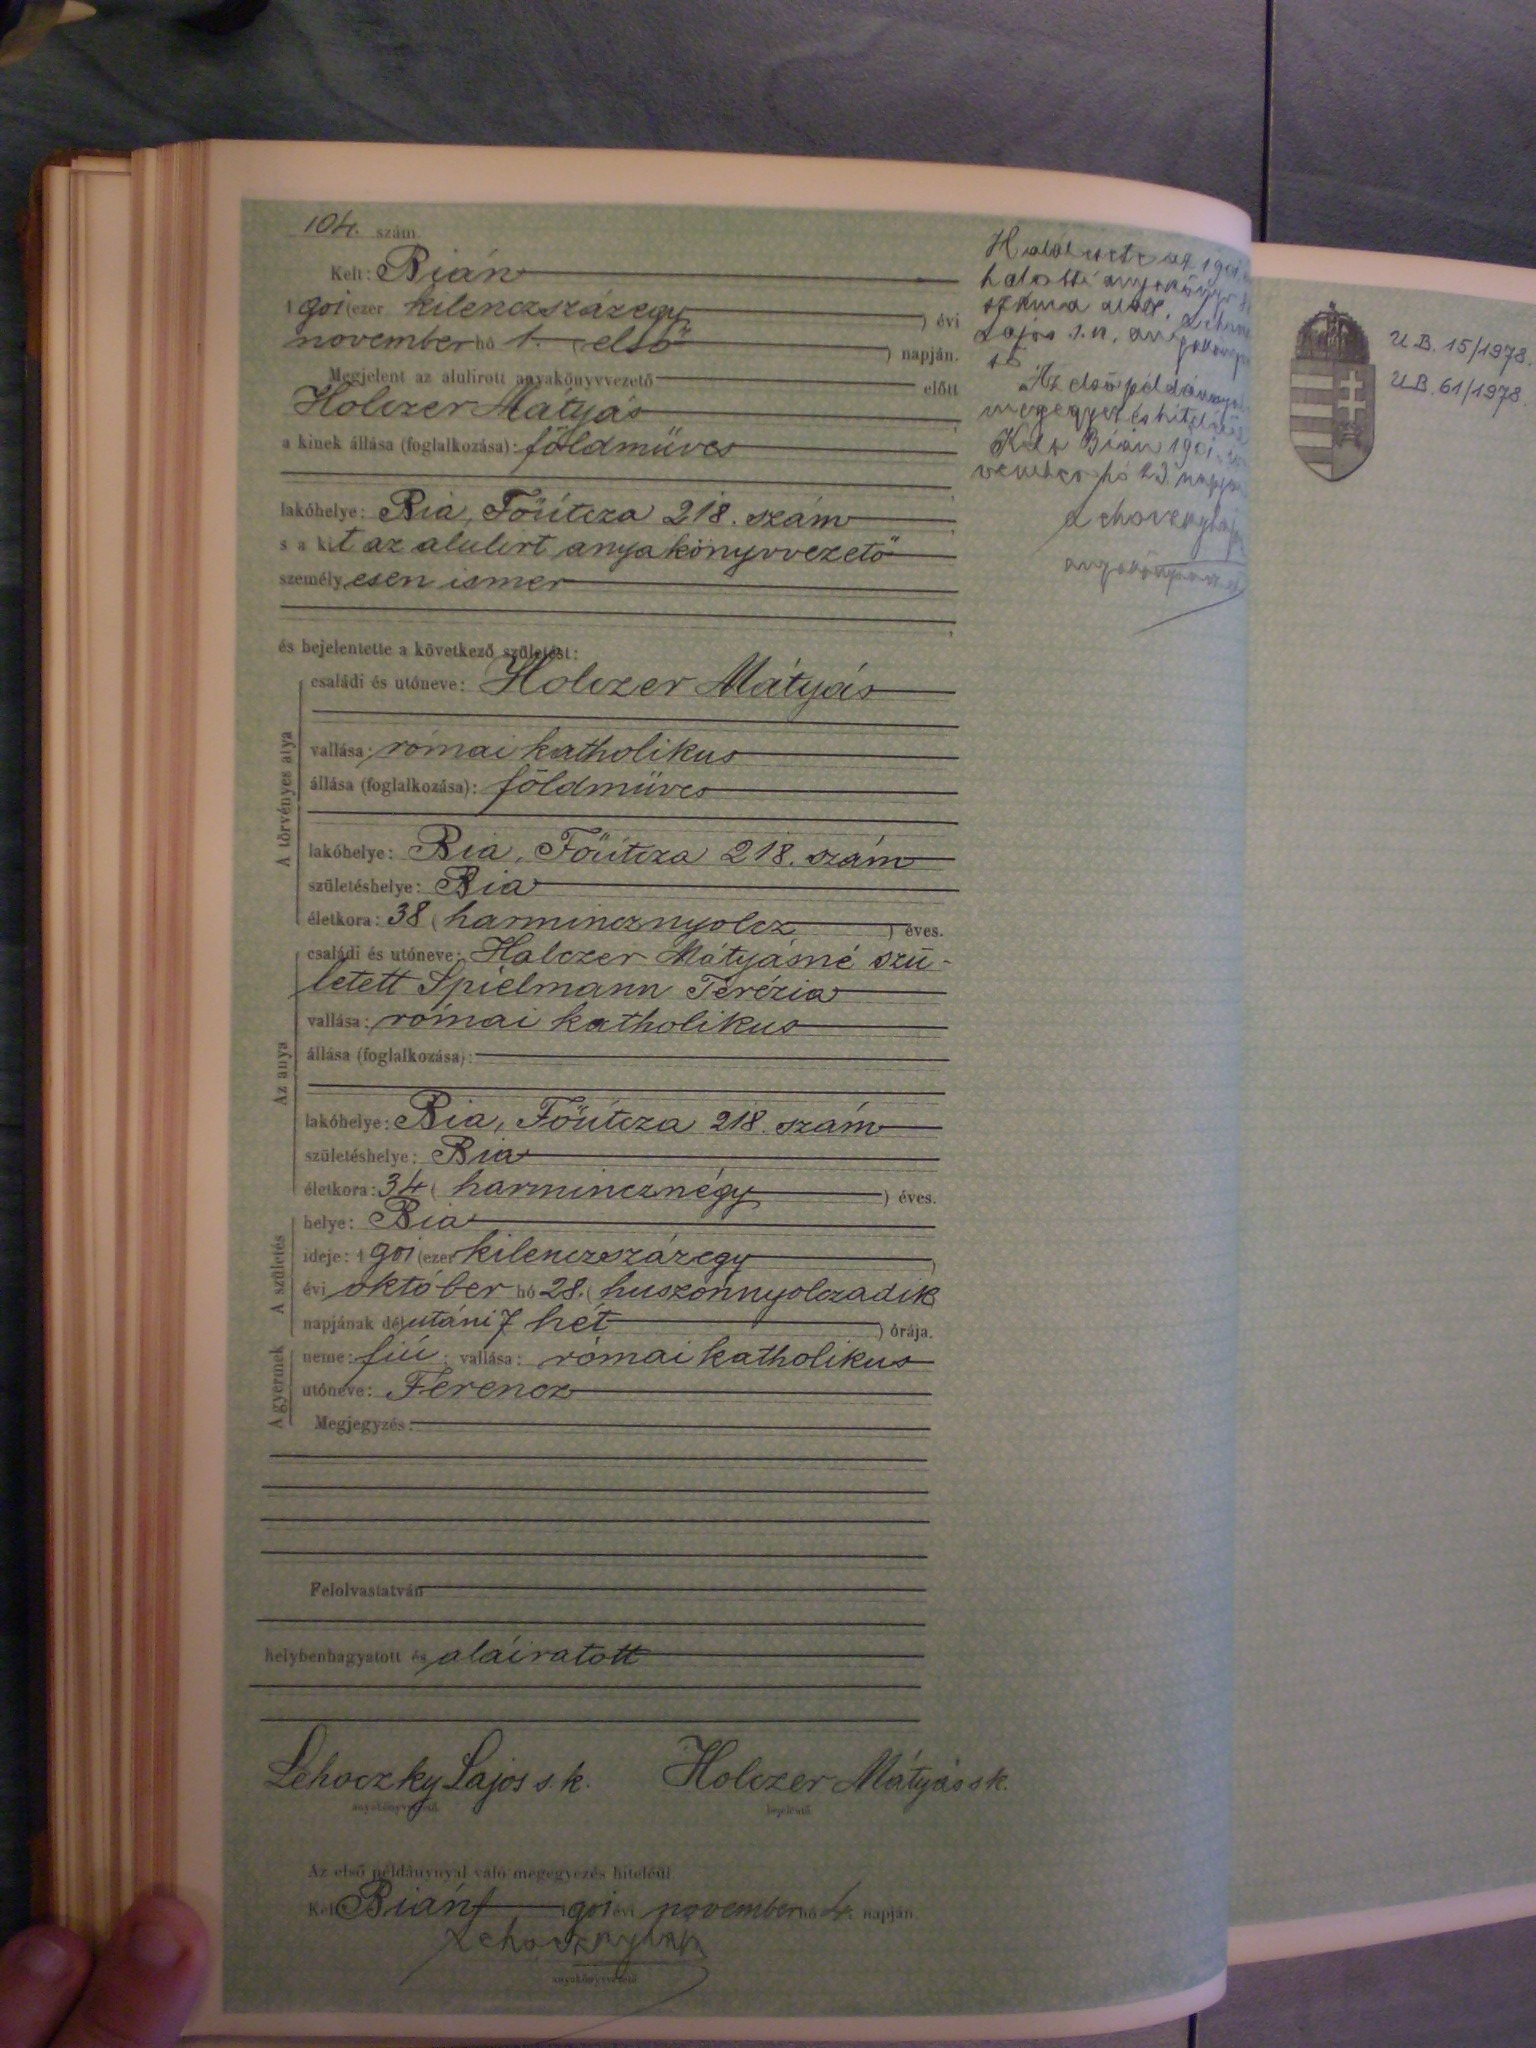 104. szám.
Kelt: Bián
1901 (ezer kilenczszázegy ) évi
november hó 1. (első ) napján.
Megjelent az alulirott anyakönyvvezető előtt
Holczer Mátyás
a kinek állása (foglalkozása): földmüves
lakóhelye: Bia, Főútcza 218. szám
s a kit az alulirt anyakönyvvezető
személyesen ismer
és bejelentette a következő születést:
A törvényes atya
családi és utóneve: Holczer Mátyás
vallása: római katholikus
állása (foglalkozása): földmüves
lakóhelye: Bia, Főútcza 218. szám
születéshelye: Bia
életkora: 38 (harmincznyolcz ) éves.
Az anya
családi és utóneve: Holczer Mátyásné szü-
letett Spielmann Terézia
vallása: római katholikus
állása (foglalkozása):
lakóhelye: Bia, Főútcza 218. szám
születéshelye: Bia
életkora: 34 (harmincznégy ) éves.
A születés
helye: Bia
ideje: 1901 (ezer kilenczszázegy )
évi október hó 28. (huszonnyolczadik
napjának délutáni 7 hét ) órája.
A gyermek
neme: fiú; vallása: római katholikus
utóneve: Ferencz
Megjegyzés:
Felolvastatván
helybenhagyatott és aláiratott
Lehoczky Lajos s. k. Holczer Mátyás s k.
anyakönyvvezető bejelentő
Az első példánynyal való megegyezés hiteléül
Kelt Bián 1901 évi november hó 4. napján.
Lehoczky Lajos
anyakönyvvezető
Halálesete az 1901.
halotti
szám alatt.
Lajos s. k.
Az első
megegyezés
Kelt Bián 1901.
vember hó 23. napján
U.B. 15/1978.
U.B. 61/1978.